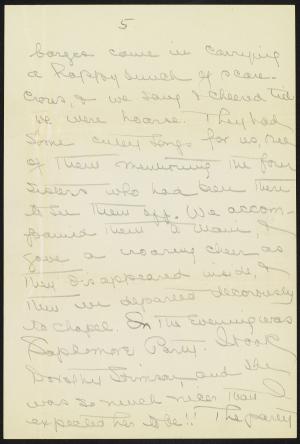 5
barges came in carrying
a happy bunch of scare-
crows, & we sang & cheered till
we were hoarse. They had
some cutey songs for us, one
of them mentioning the four
sisters who had been there
to see them off. We accom-
panied them to Main, &
gave a roaring cheer as
they disappeared inside, &
then we departed decorously
to chapel. In the evening was
Sophomore Party. I took
Dorothy Stimson, and she
was so much nicer than I
expected her to be!! The party